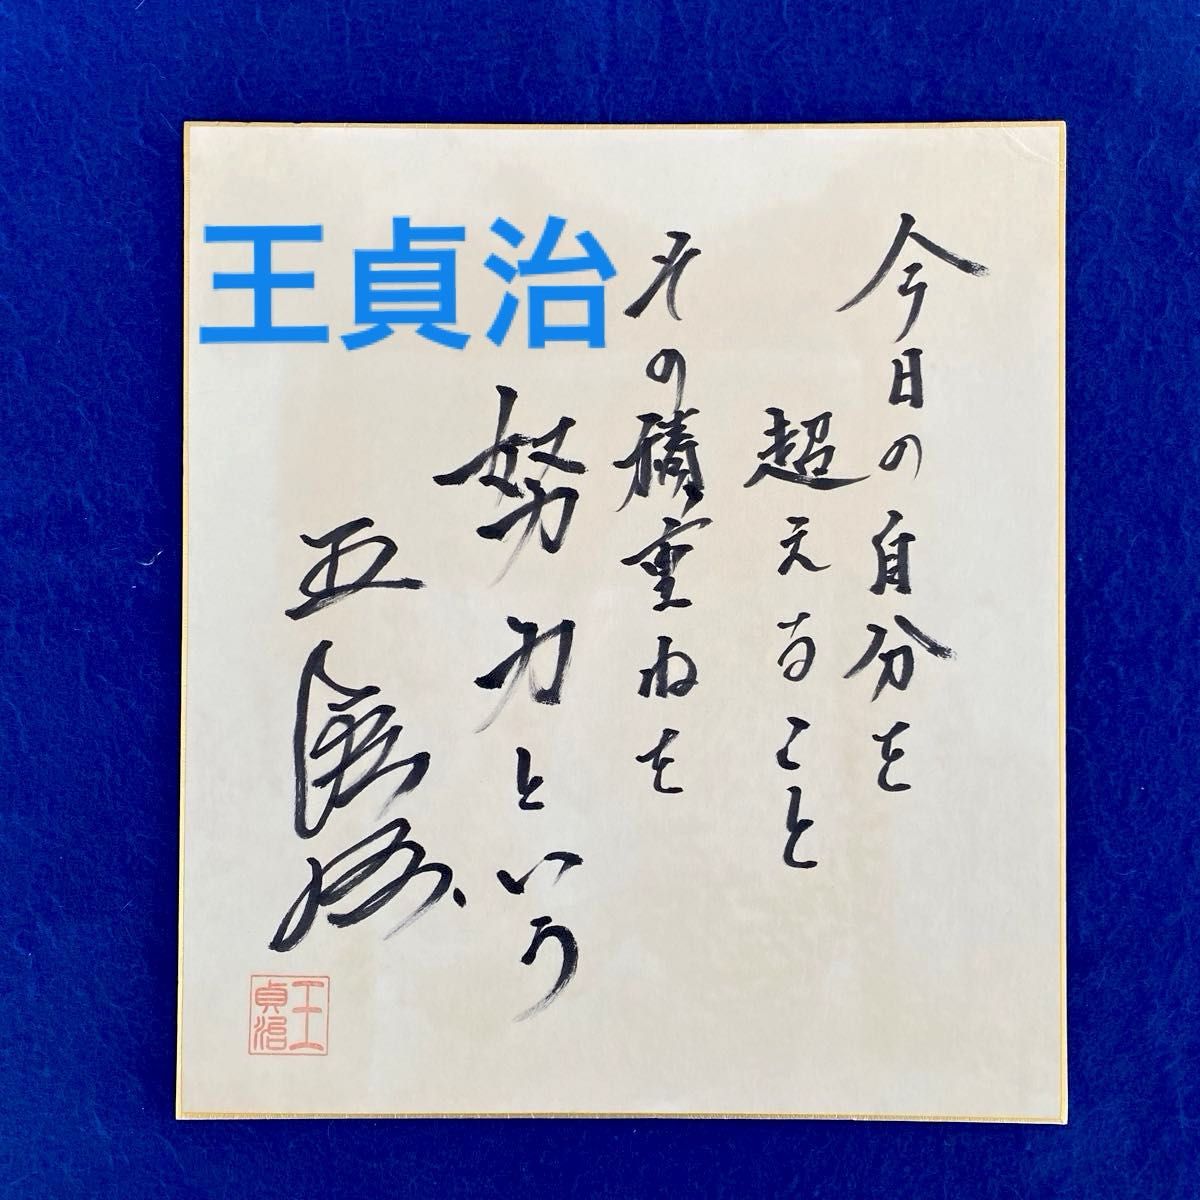 今日の自分を
超えること
その積重ねを
努力という
王貞治
王貞治
王貞治